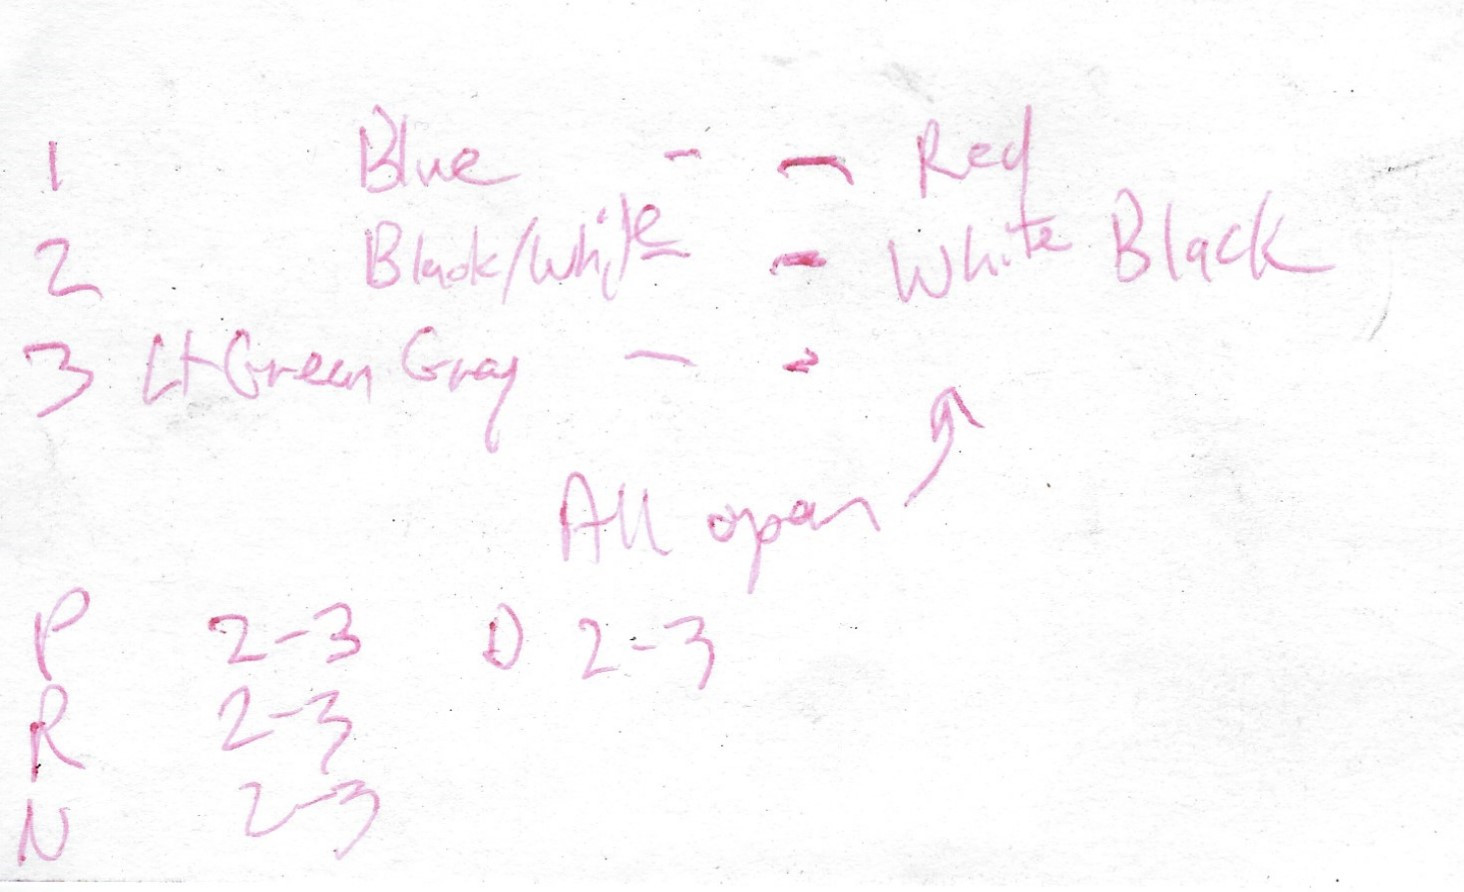 1 Blue - - Red
2 Black/White - White Black
3 Lt Green Gray - -
All open
P 2-3 D 2-3
R 2-3
N 2-3